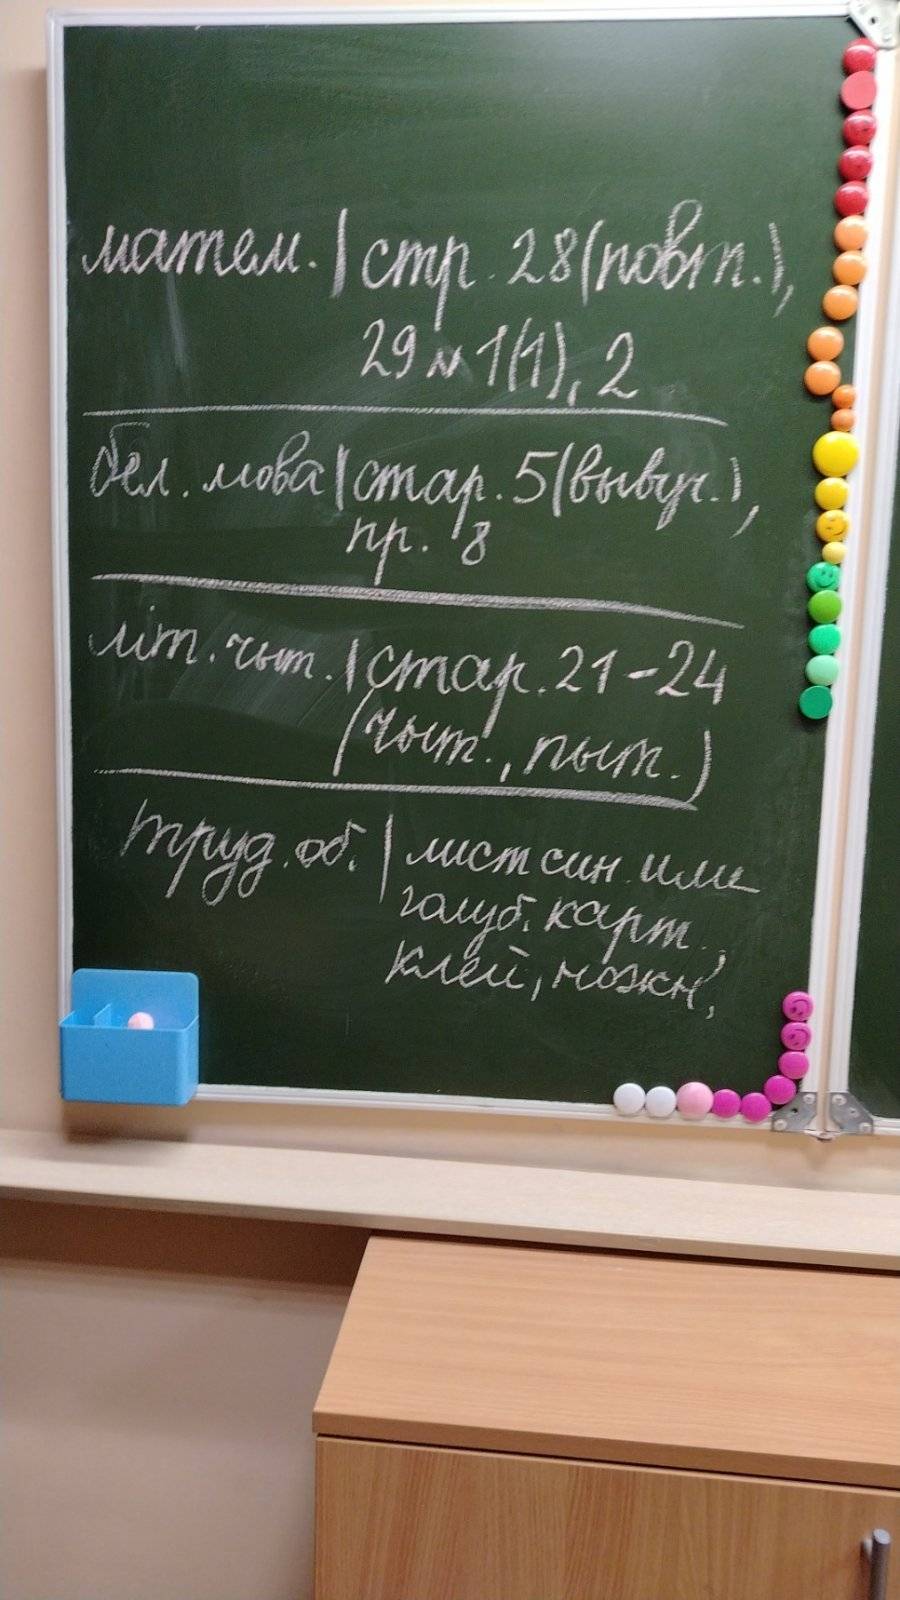 матем. | стр. 28 (повт.),
29 № 1(1), 2
бел. мова | стар. 5 (вывуч.),
пр. 8
літ. чыт. | стар. 21-24
(чыт., пыт.)
труд. об. | лист син. или
голуб. карт.,
клей, ножн.